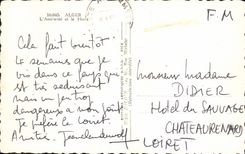 ALGER
L'Amirauté et le Phare
F. M
Cela fait bientôt
semaines que je
vis dans ce pays qui
est très séduisant
mais un peu trop
dangereux à mon goût
Je préfère le Loiret
Amitiés.
Monsieur Madame
DIDIER
Hotel du SAUVAGE
CHATEAURENARD
LOIRET